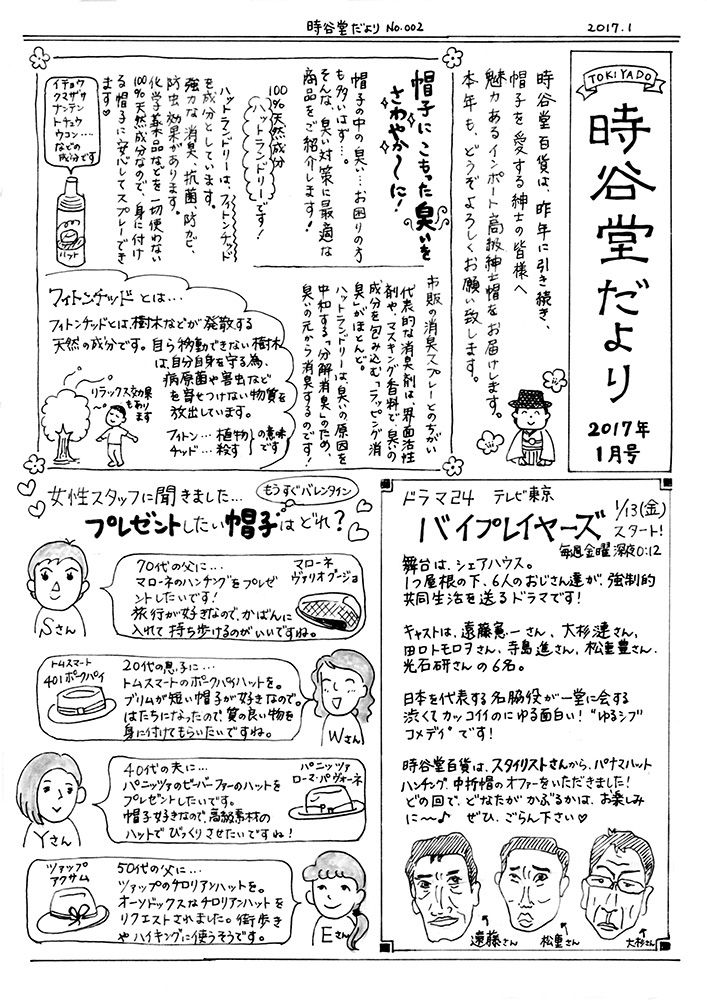 時谷堂だより No.002
2017.1
TOKIYADO
時谷堂だより
2017年
1月号
時谷堂百貨は、昨年に引き続き、
帽子を愛する紳士の皆様へ
魅力あるインポート高級紳士帽をお届けします。
本年も、どうぞよろしくお願い致します。
帽子にこもった臭いを
さわやか〜に!
帽子の中の臭い…お困りの方
も多いはず…。
そんな、臭い対策に最適な
商品をご紹介します!
100%天然成分
ハットランドリーです!
ハットランドリーは、フィトンチッド
を成分としています。
強力な消臭、抗菌、防カビ、
防虫効果があります。
化学薬品などを一切使わない
100%天然成分なので、身に付け
る帽子に安心してスプレーでき
ます♡
イチョウ
クマザサ
ナンテン
トチュウ
ウコン‥‥
などの
成分です
ハット
市販の消臭スプレーとのちがい
代表的な消臭剤は、界面活性
剤や、マスキング香料で、臭いの
成分を包み込む「ラッピング消
臭」がほとんど。
ハットランドリーは、臭いの原因を
中和する、「分解消臭」のため、
臭いの元から消臭するのです!
フィトンチッドとは…
フィトンチッドとは、樹木などが発散する
天然の成分です。自ら移動できない樹木
は、自分自身を守る為、
病原菌や害虫など
を寄せつけない物質を
放出しています。
フィトン…植物
チッド…殺す
の意味
です
リラックス効果
もあり
ます
女性スタッフに聞きました…
もうすぐバレンタイン
プレゼントしたい帽子はどれ?
70代の父に…
マローネのハンチングをプレゼ
ントしたいです!
旅行が好きなので、かばんに
入れて持ち歩けるのがいいですね。
マローネ
ヴァリオプージョ
Sさん
トムスマート
401ポークパイ
20代の息子に…
トムスマートのポークパイハットを。
ブリムが短い帽子が好きなので。
はたちになったので、質の良い物を
身に付けてもらいたいですね。
Wさん
40代の夫に…
パニッツァのビーバーファーのハットを
プレゼントしたいです。
帽子好きなので、高級素材の
ハットでびっくりさせたいですね!
パニッツァ
ローマ・パヴォーネ
Yさん
ツァップ
アクサム
50代の父に…
ツァップのチロリアンハットを。
オーソドックスなチロリアンハットを
リクエストされました。街歩き
やハイキングに使うそうです。
Eさん
ドラマ24 テレビ東京
バイプレイヤーズ
1/13(金)
スタート!
毎週金曜 深夜0:12
舞台は、シェアハウス。
1つ屋根の下、6人のおじさん達が、強制的
共同生活を送るドラマです!
キャストは、遠藤憲一さん、大杉漣さん、
田口トモロヲさん、寺島進さん、松重豊さん、
光石研さんの6名。
日本を代表する名脇役が一堂に会する
渋くてカッコイイのにゆる面白い!“ゆるシブ
コメディ”です!
時谷堂百貨は、スタイリストさんから、パナマハット
ハンチング、中折帽のオファーをいただきました!
どの回で、どなたがかぶるかは、お楽しみ
に〜♪ ぜひ、ごらん下さい♡
遠藤さん
松重さん
大杉さん